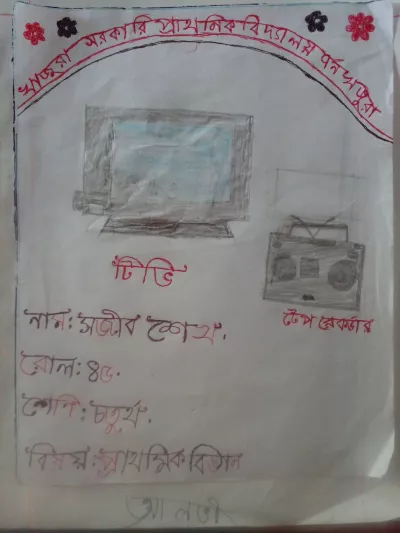 খাজুরা সরকারি প্রাথমিক বিদ্যালয় খাজুরা
টিভি
টেপ রেকর্ডার
নাম: সজীব শেখ.
রোল: ৪৬.
শ্রেণি: চতুর্থ.
বিষয়: প্রাথমিক বিজ্ঞান